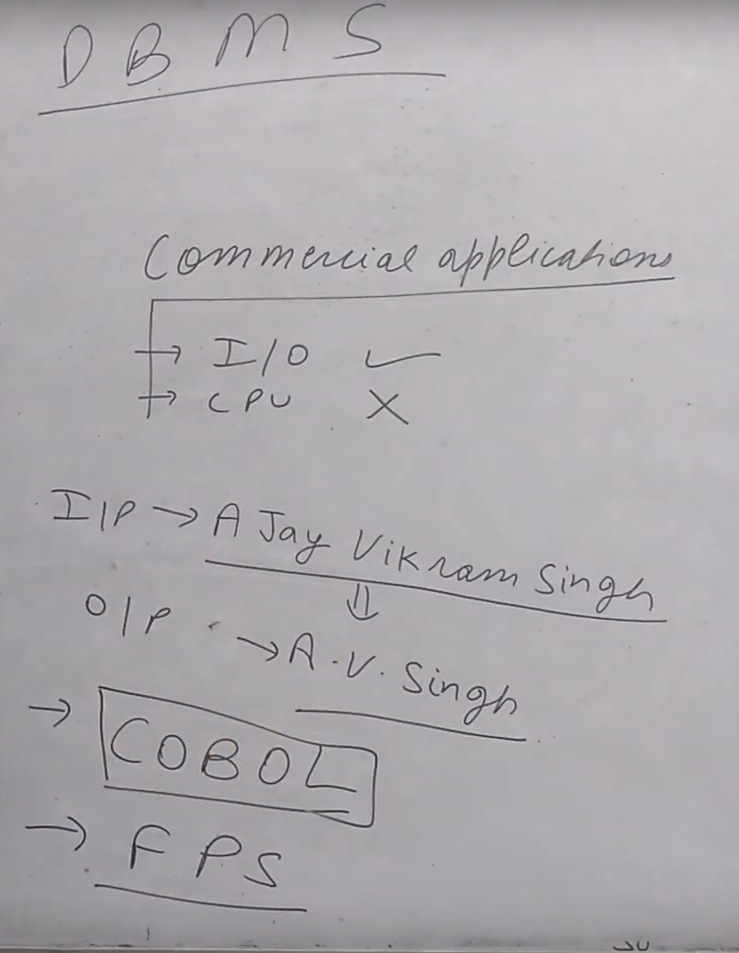 DBMS
Commercial applications
→ I/O ✓
→ CPU X
I/P → AJay Vikram Singh
⇓
O/P → A.V. Singh
→ COBOL
→ FPS